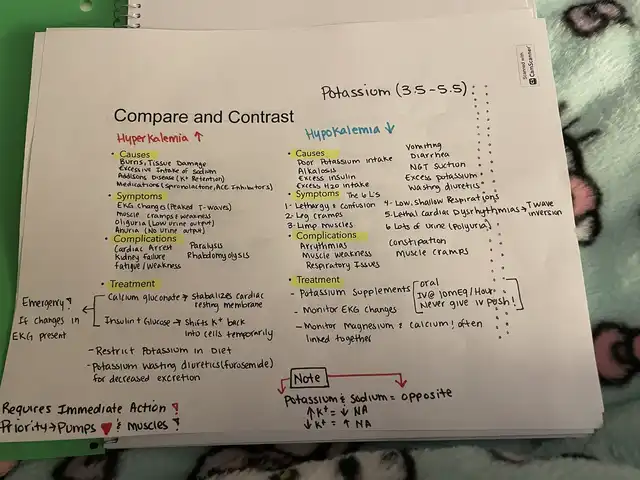 Scanned with
CamScanner
Potassium (3.5-5.5)
Compare and Contrast
Hyperkalemia ↑
• Causes
Burns, Tissue Damage
Excessive Intake of Sodium
Addisons Disease (K+ Retention)
Medications (Spironolactone, ACE Inhibitors)
• Symptoms
EKG Changes (Peaked T-waves)
Muscle cramps & weakness
Oliguria (Low urine output)
Anuria (No urine output)
• Complications
Cardiac Arrest Paralysis
Kidney failure Rhabdomyolysis
fatigue/weakness
• Treatment
Calcium gluconate → Stabalizes cardiac
resting membrane
Insulin + Glucose → Shifts K+ back
into cells temporarily
Emergency!
If changes in
EKG present
- Restrict Potassium in Diet
- Potassium wasting diuretics (furosemide)
for decreased excretion
Requires Immediate Action !
Priority → Pumps ♥ & Muscles !
Hypokalemia ↓
• Causes
Poor Potassium intake Vomiting
Alkalosis Diarrhea
Excess insulin NGT suction
Excess H2O intake Excess potassium
Wasting diuretics
• Symptoms The 6 L's
1- Lethargy & Confusion 4- Low, Shallow Respirations
2- Leg Cramps 5. Lethal Cardiac Dysrhythmias → T wave
inversion
3- Limp muscles 6 Lots of Urine (Polyuria)
• Complications
Arrythmias constipation
Muscle weakness Muscle cramps
Respiratory Issues
• Treatment
- Potassium Supplements oral
IV@ 10mEq/Hour
Never give iv Push!
- Monitor EKG changes
- Monitor Magnesium & calcium! often
linked together
Note
Potassium & Sodium = opposite
↑ K+ = ↓ NA
↓ K+ = ↑ NA